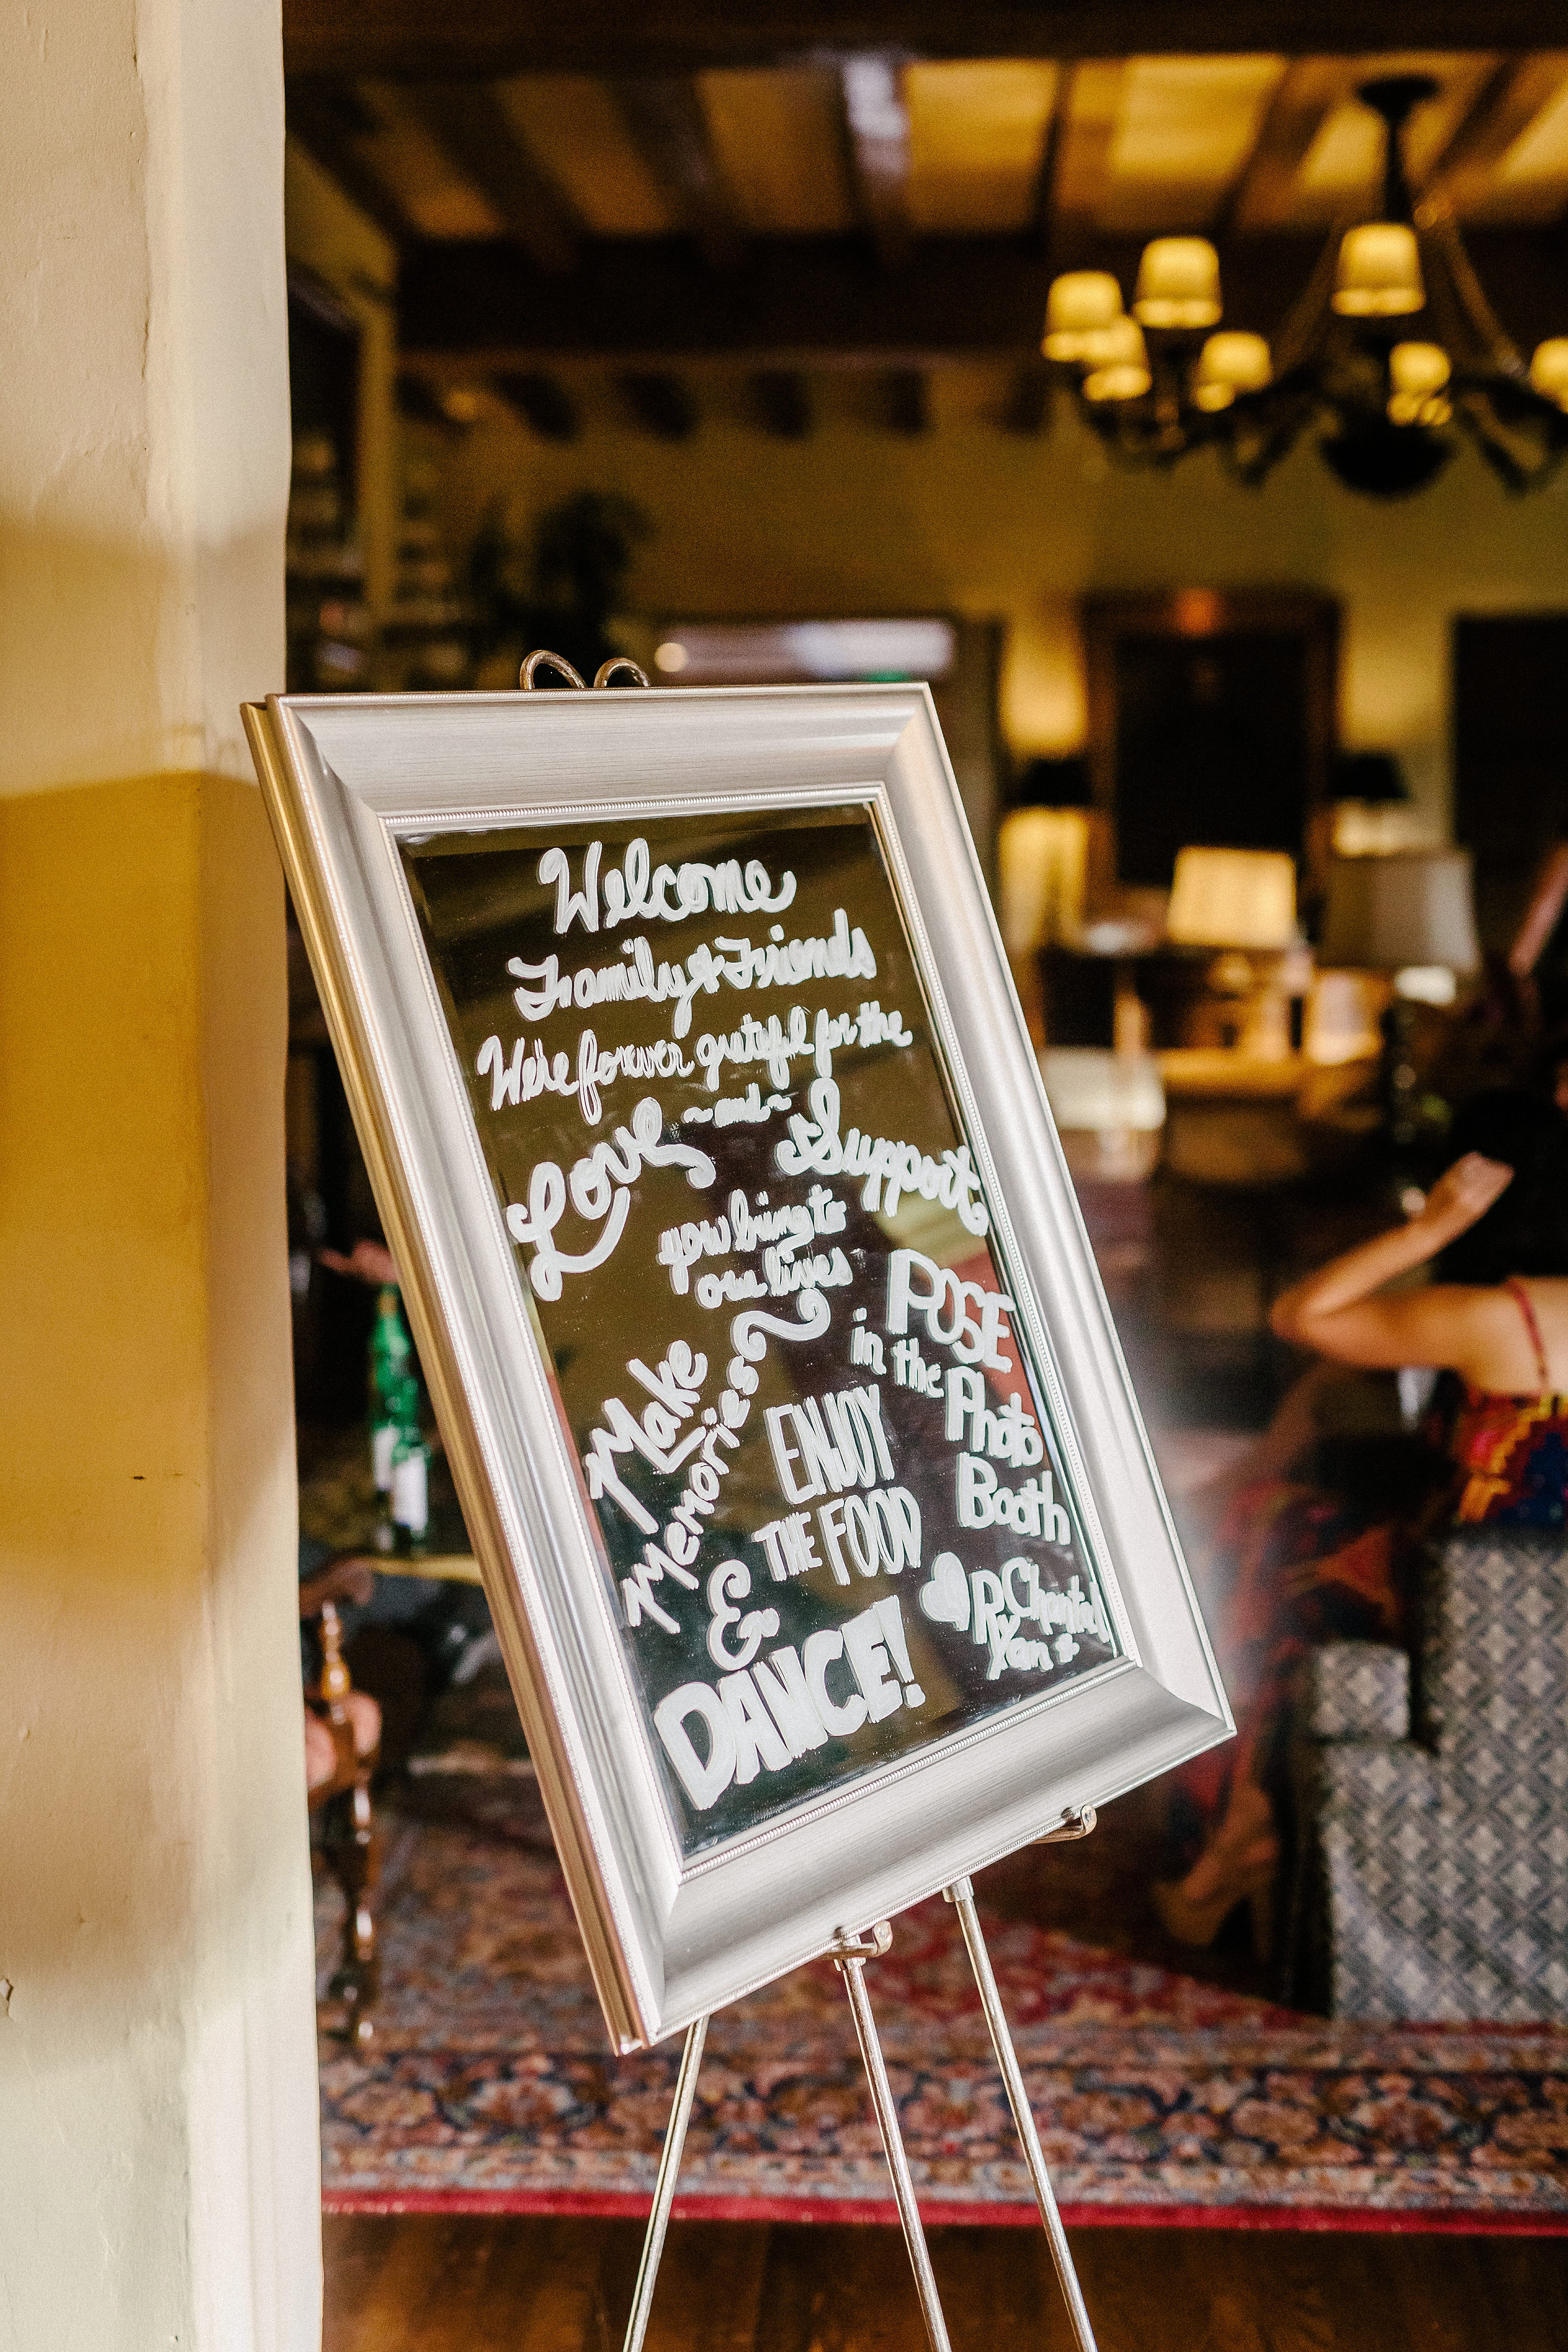 Welcome
Family & Friends
We're forever grateful for the
Love ~and~ Support
you bring to
our lives
Make
Memories
POSE
in the
Photo
Booth
ENJOY
THE FOOD
&
DANCE!
Chantal
Ryan +